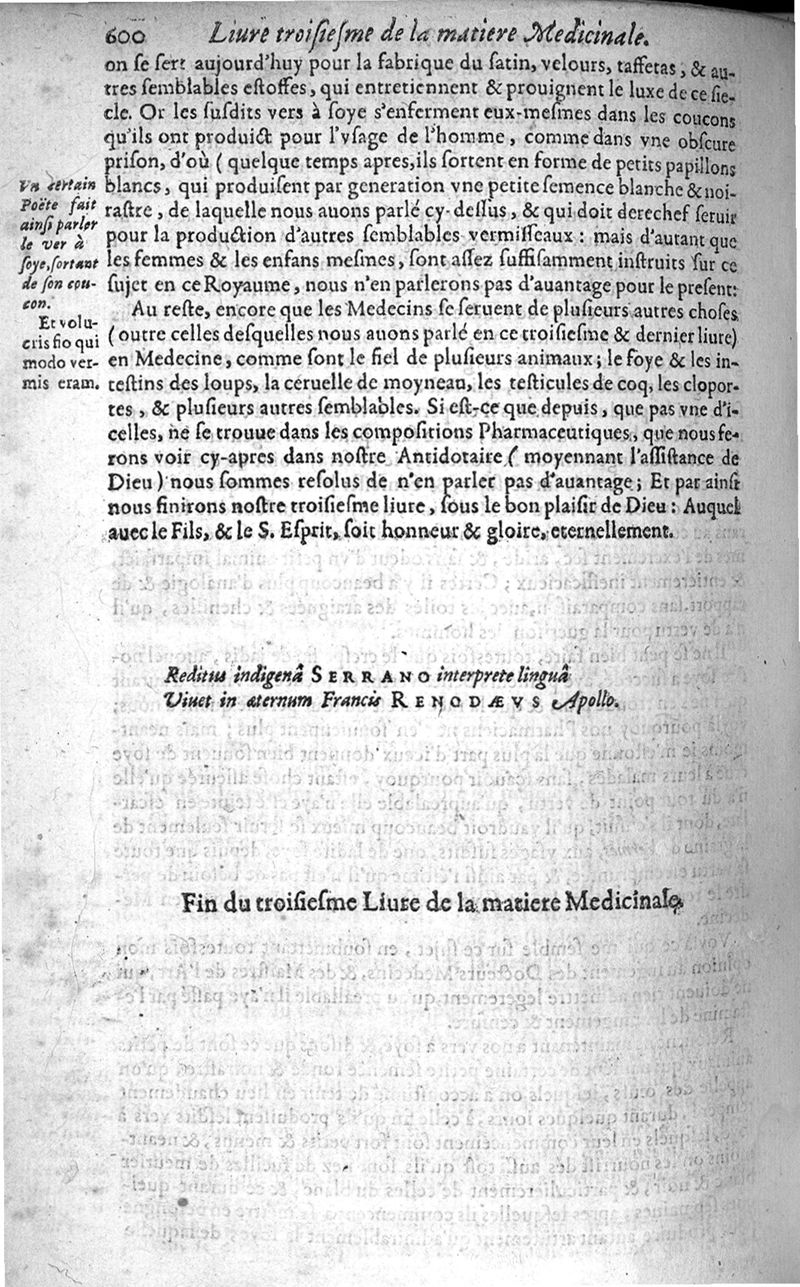 600 Liure troisiesme de la matiere Medicinale.
on se sert aujourd'huy pour la fabrique du satin, velours, taffetas, & au-
tres semblables estoffes, qui entretiennent & prouignent le luxe de ce sie-
cle. Or les susdits vers à soye s'enferment eux-mesmes dans les coucons
qu'ils ont produict pour l'vsage de l'homme, comme dans vne obscure
prison, d'où ( quelque temps apres, ils sortent en forme de petits papillons
blancs, qui produisent par generation vne petite semence blanche & noi-
rastre, de laquelle nous auons parlé cy-dessus, & qui doit derechef seruir
pour la production d'autres semblables vermisseaux : mais d'autant que
les femmes & les enfans mesmes, sont assez suffisamment instruits sur ce
sujet en ce Royaume, nous n'en parlerons pas d'auantage pour le present:
Au reste, encore que les Medecins se seruent de plusieurs autres choses
( outre celles desquelles nous auons parlé en ce troisiesme & dernier liure)
en Medecine, comme sont le fiel de plusieurs animaux; le foye & les in-
testins des loups, la ceruelle de moyneau, les testicules de coq, les clopor-
tes, & plusieurs autres semblables. Si est-ce que depuis, que pas vne d'i-
celles, ne se trouue dans les compositions Pharmaceutiques, que nous fe-
rons voir cy-apres dans nostre Antidotaire ( moyennant l'assistance de
Dieu ) nous sommes resolus de n'en parler pas d'auantage; Et par ainsi
nous finirons nostre troisiesme liure, sous le bon plaisir de Dieu : Auquel
auec le Fils, & le S. Esprit, soit honneur & gloire, eternellement.
Vn certain
Poëte fait
ainsi parler
le ver à
soye, sortant
de son cou-
con.
Et volu-
cris fio qui
modo ver-
mis eram.
Reditus indigenâ SERRANO interprete linguâ
Viuet in æternum Francis RENODÆVS Apollo.
Fin du troisiesme Liure de la matiere Medicinale.